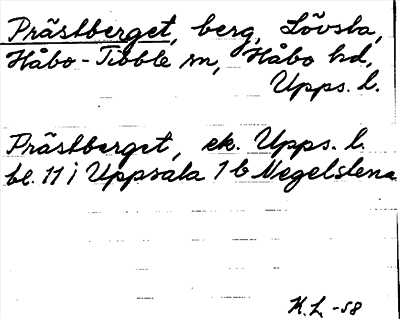 Prästberget, berg, Lövsta,
Håbo-Tibble sn, Håbo hd,
Upps. l.
Prästberget, ek. Upps. l.
bl. 11 i Uppsala 1 b Negelstena
K.L. -58